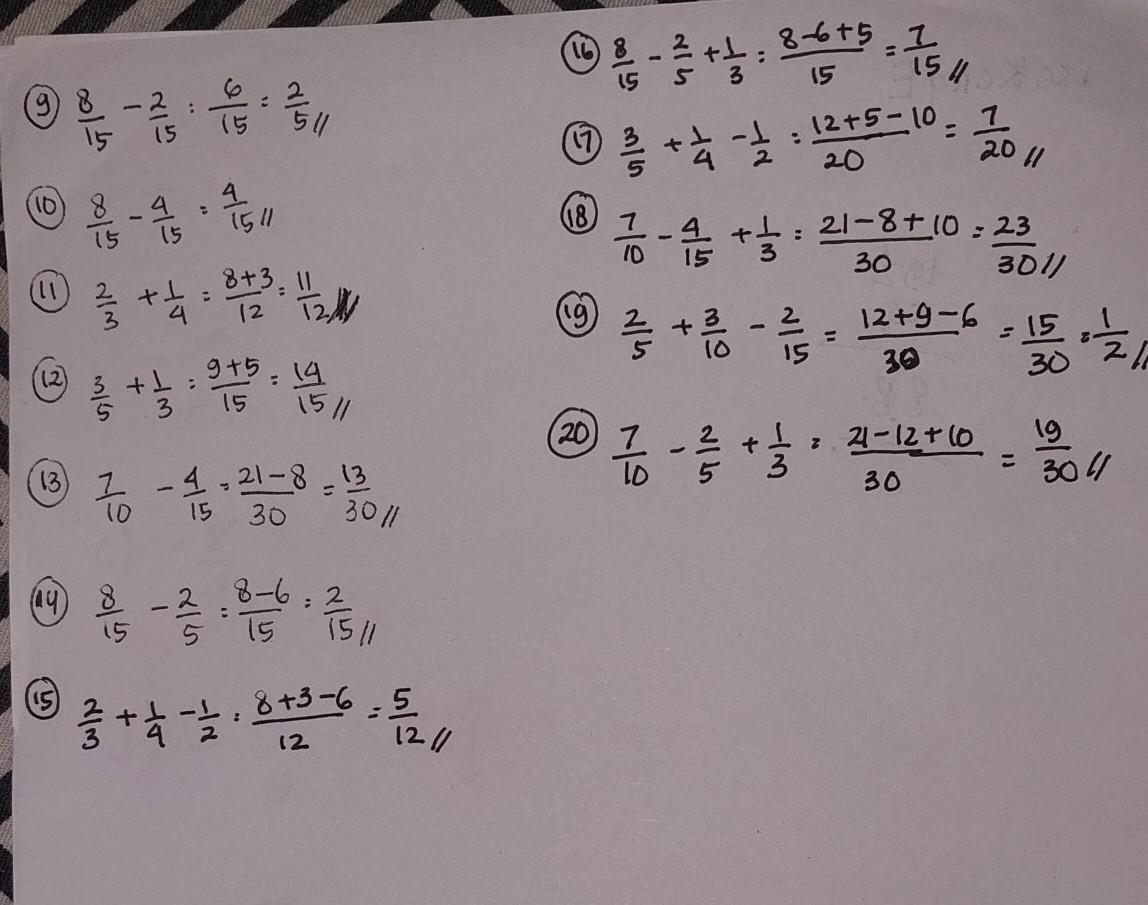 ⑨ 8/15 - 2/15 = 6/15 = 2/5 //
⑩ 8/15 - 4/15 = 4/15 //
⑪ 2/3 + 1/4 = 8+3/12 = 11/12 //
⑫ 3/5 + 1/3 = 9+5/15 = 14/15 //
⑬ 7/10 - 4/15 = 21-8/30 = 13/30 //
⑭ 8/15 - 2/5 = 8-6/15 = 2/15 //
⑮ 2/3 + 1/4 - 1/2 = 8+3-6/12 = 5/12 //
⑯ 8/15 - 2/5 + 1/3 = 8-6+5/15 = 7/15 //
⑰ 3/5 + 1/4 - 1/2 = 12+5-10/20 = 7/20 //
⑱ 7/10 - 4/15 + 1/3 = 21-8+10/30 = 23/30 //
⑲ 2/5 + 3/10 - 2/15 = 12+9-6/30 = 15/30 = 1/2 //
⑳ 7/10 - 2/5 + 1/3 = 21-12+10/30 = 19/30 //